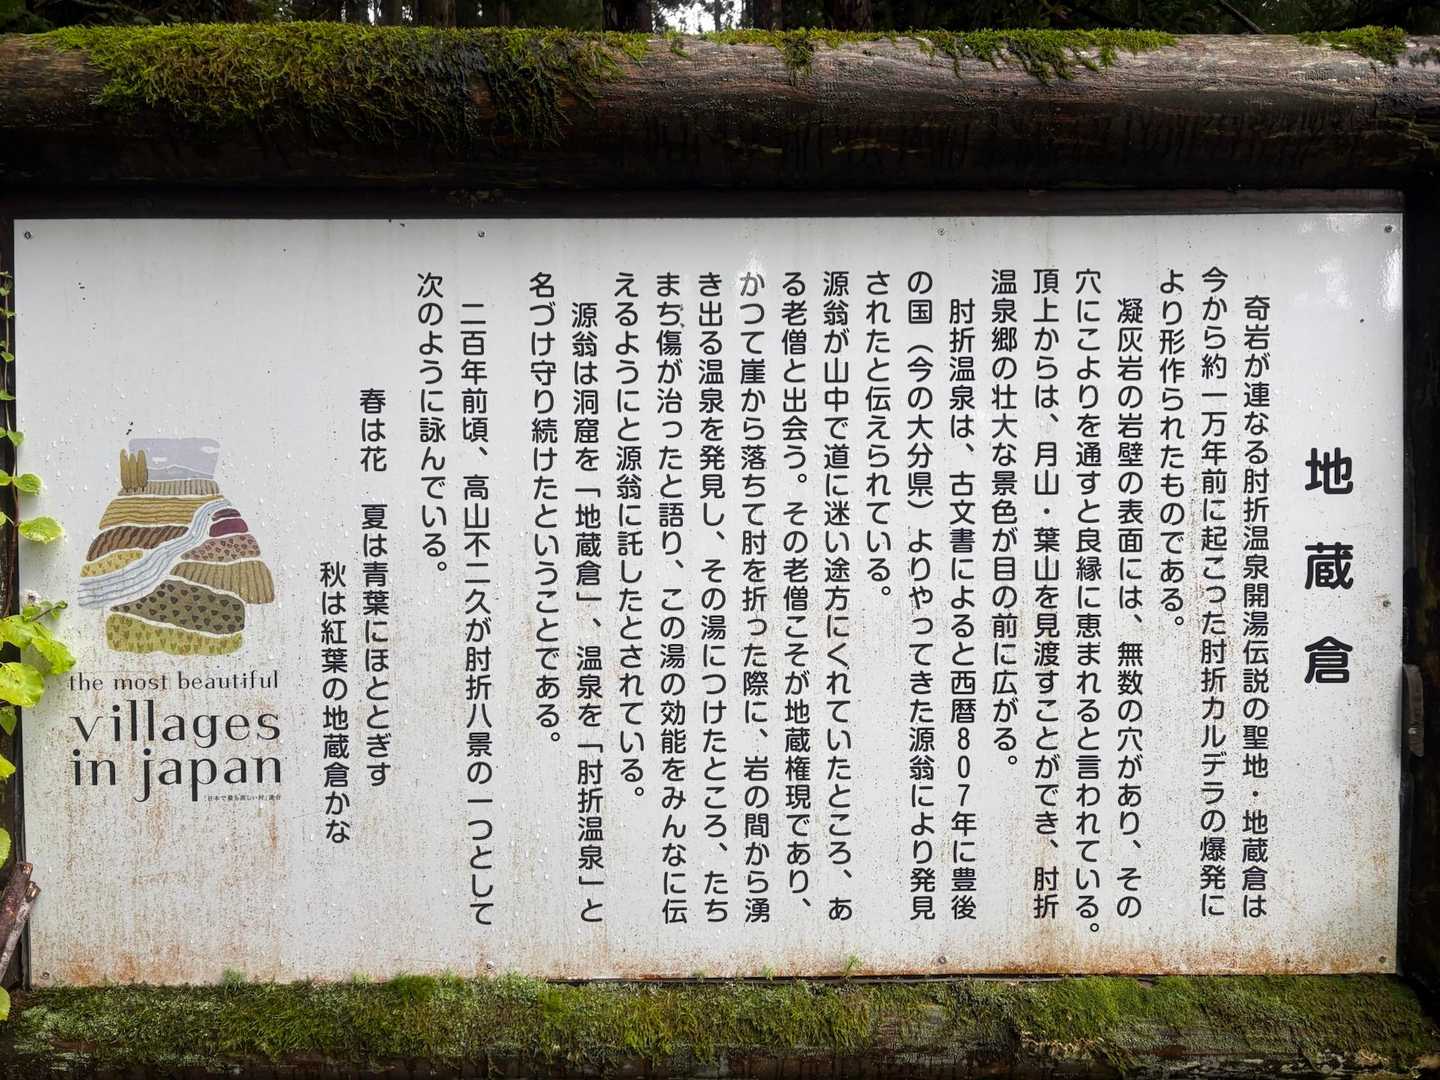 地蔵倉
奇岩が連なる肘折温泉開湯伝説の聖地・地蔵倉は
今から約一万年前に起こった肘折カルデラの爆発に
より形作られたものである。
凝灰岩の岩壁の表面には、無数の穴があり、その
穴にこよりを通すと良縁に恵まれると言われている。
頂上からは、月山・葉山を見渡すことができ、肘折
温泉郷の壮大な景色が目の前に広がる。
肘折温泉は、古文書によると西暦807年に豊後
の国（今の大分県）よりやってきた源翁により発見
されたと伝えられている。
源翁が山中で道に迷い途方にくれていたところ、あ
る老僧と出会う。その老僧こそが地蔵権現であり、
かつて崖から落ちて肘を折った際に、岩の間から湧
き出る温泉を発見し、その湯につけたところ、たち
まち傷が治ったと語り、この湯の効能をみんなに伝
えるようにと源翁に託したとされている。
源翁は洞窟を「地蔵倉」、温泉を「肘折温泉」と
名づけ守り続けたということである。
二百年前頃、高山不二久が肘折八景の一つとして
次のように詠んでいる。
春は花　夏は青葉にほととぎす
秋は紅葉の地蔵倉かな
the most beautiful
villages
in japan
「日本で最も美しい村」連合